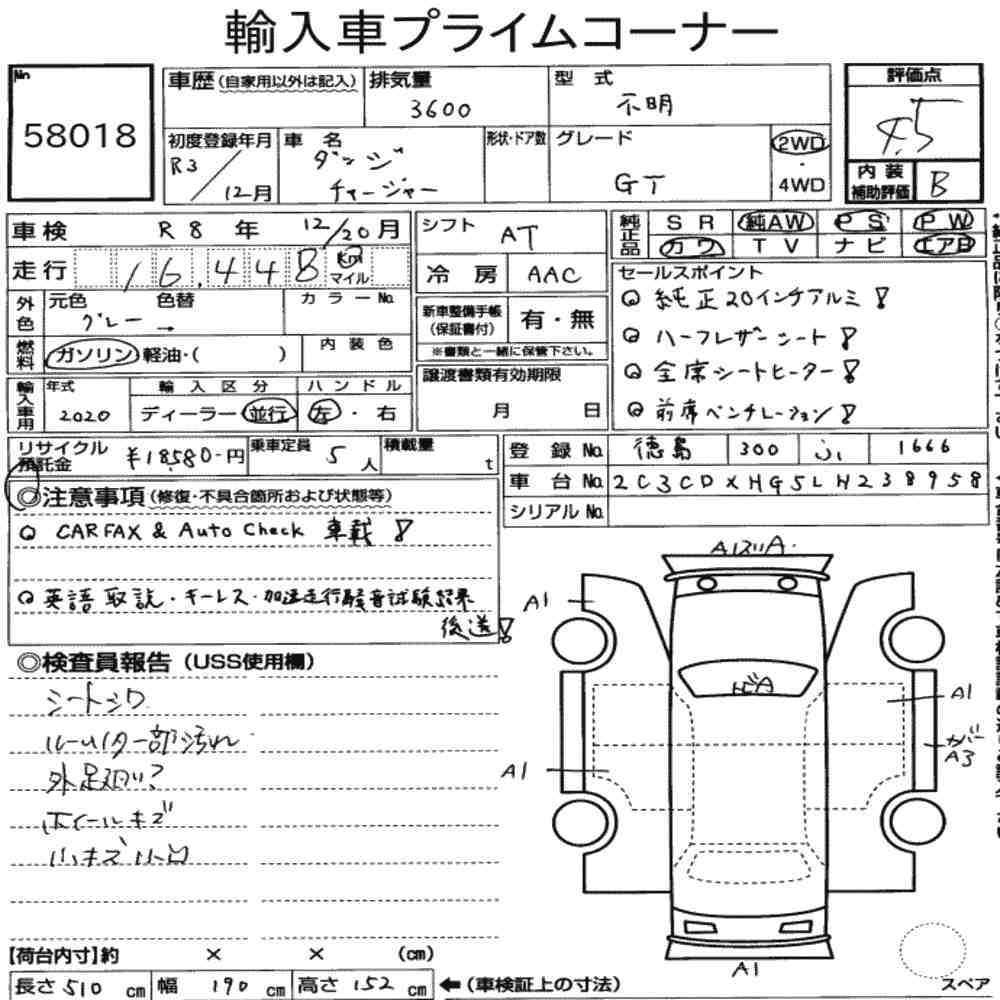 輸入車プライムコーナー
No 58018
車歴 (自家用以外は記入)
排気量 3600
型式 不明
評価点 4.5
初度登録年月 R3/12月
車名 ダッジ チャージャー
形状・ドア数
グレード GT
2WD・4WD
内装補助評価 B
車検 R8年 12/20月
シフト AT
純正品 SR 純AW PS PW
カワ TV ナビ エアB
走行 16,448 km マイル
冷房 AAC
セールスポイント
純正20インチアルミ!
ハーフレザーシート!
全席シートヒーター!
前席ベンチレーション!
外色 元色 グレー → 色替 カラーNo.
新車整備手帳(保証書付) 有・無
※書類と一緒に保管下さい。
燃料 ガソリン 軽油・( ) 内装色
譲渡書類有効期限 月 日
輸入車用 年式 2020 輸入区分 ディーラー 並行 ハンドル 左・右
リサイクル預託金 ¥18580-円
乗車定員 5人
積載量 t
登録No. 徳島 300 ふ 1666
車台No. 2C3CDXHG5LH238958
シリアルNo.
◎注意事項 (修復・不具合箇所および状態等)
CARFAX & Auto Check 車載!
英語取説・キーレス・加速走行騒音試験結果
後送!
◎検査員報告 (USS使用欄)
シートシワ
汚れ
外足廻り?
ホイールキズ
小キズ 小凹
A1 A
A1
トビA
A1
ガバー A3
A1
A1
【荷台内寸】約 × × (cm)
長さ 510 cm 幅 190 cm 高さ 152 cm
←(車検証上の寸法)
スペア